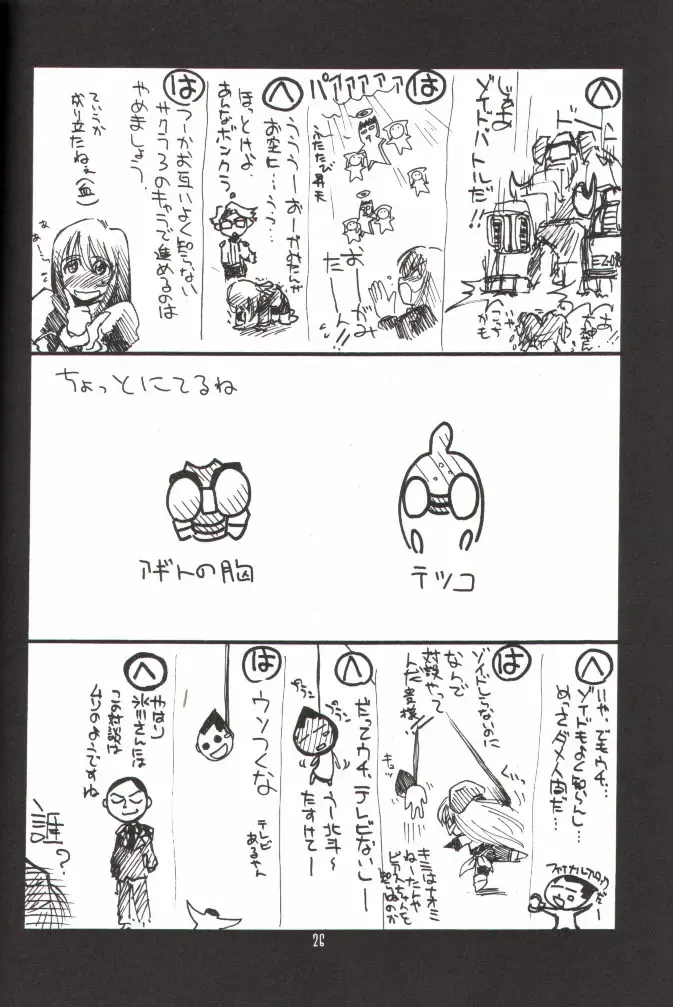 へ
じゃあ
ゾイドバトルだ!!
ドドーン
は
パアアアアァァ
ふたたび昇天
おーがみ
たーーん!!
へ
うううーおーがみたいや
お空に…うっ…
ほっとけよ
あんなボンクラ。
は
うーかお互いよく知らない
サクラ3のキャラで進めるのは
やめましょう。
ていうか
ちょっとにてるね
アギトの胸
テツコ
へ
いや、でもウチ…
ゾイドもよく知らんし…
めっさダメ人間だ…
は
ゾイドしらないのに
なんで
対談やって
んだ貴様!!
キュッ
キミはナオミ
ねーたんや
ピアスちゃんを
知らぬのか
へ
プラン
プラン
だってウチ、テレビないしー
うー北斗〜
たすけてー
は
ウソつくな
テレビ
あるやん
へ
やはり
氷川さんには
この対談は
ムリのようですね
誰?
26